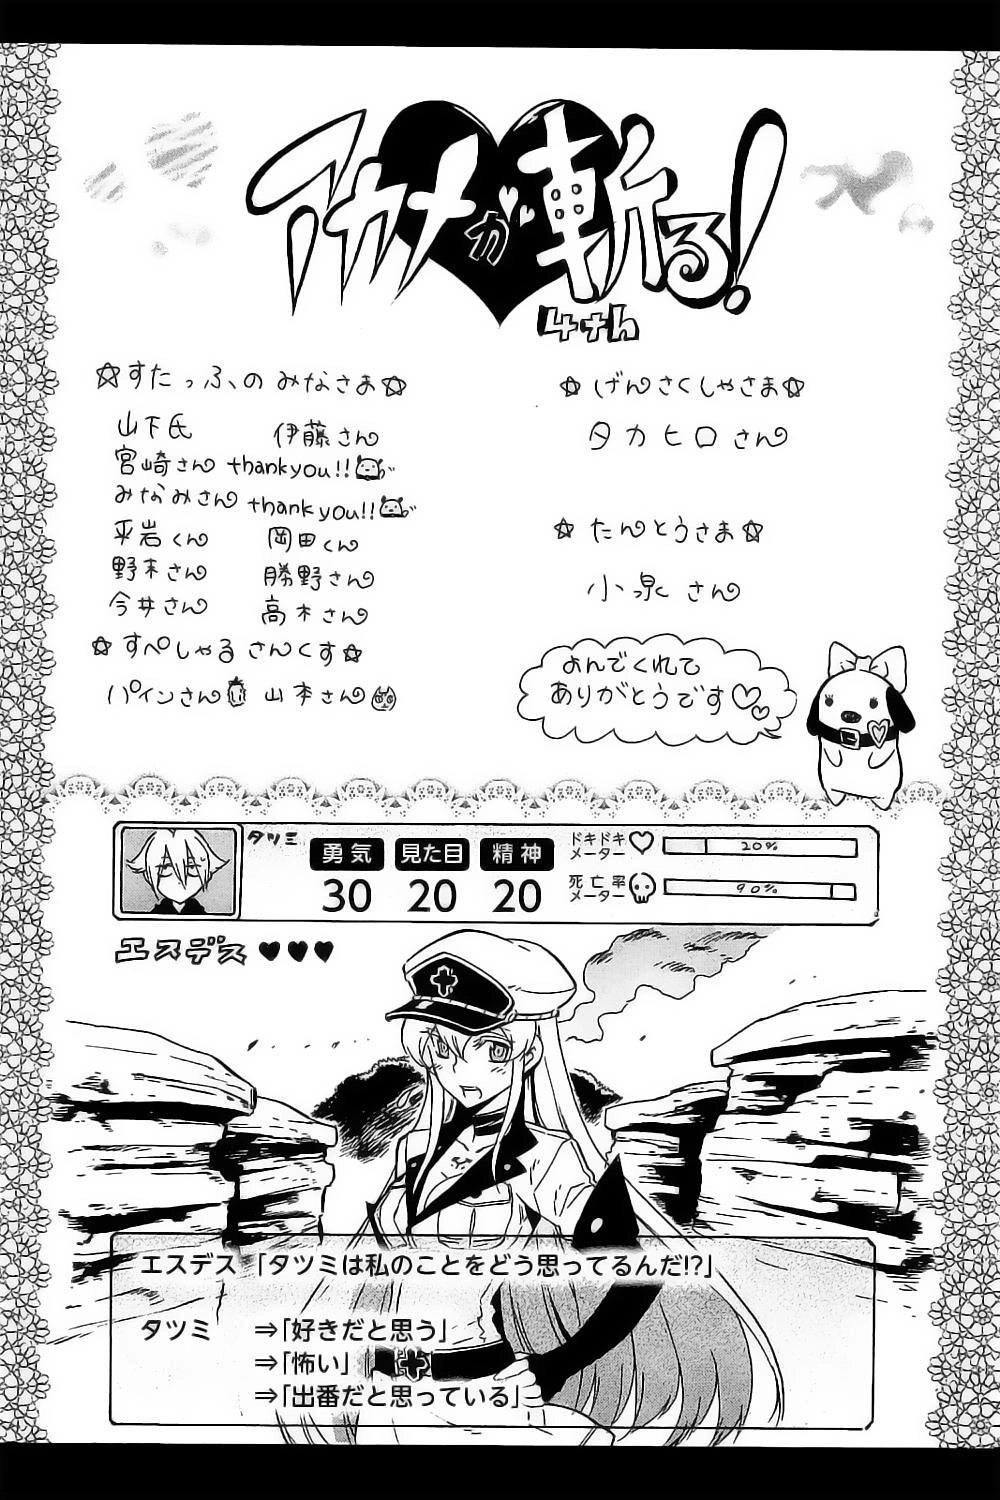 アカメが斬る!
4th
☆すたっふ、の みなさま☆
山下氏 伊藤さん
宮崎さん thank you!!
みなみさん thank you!!
平岩くん 岡田くん
野末さん 勝野さん
今井さん 高木さん
☆すぺしゃる さんくす☆
パインさん 山本さん
☆げんさくしゃさま☆
タカヒロさん
☆たんとうさま☆
小泉さん
よんでくれて
ありがとうです♡♡
タツミ
勇気 見た目 精神
30 20 20
ドキドキ
メーター 20%
死亡率
メーター 90%
エスデス ♥♥♥
エスデス「タツミは私のことをどう思ってるんだ!?」
タツミ ⇒「好きだと思う」
⇒「怖い」
⇒「出番だと思っている」